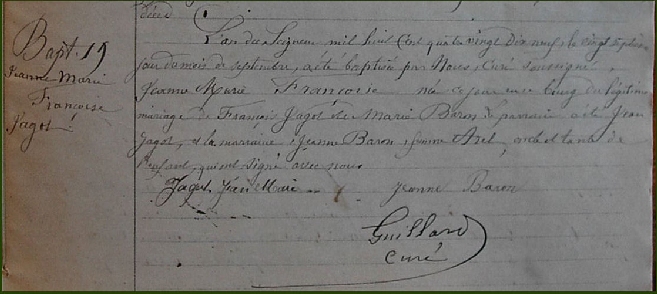 décédé
Bapt. 15
Jeanne Marie
Françoise
Jagot
L'an du Seigneur mil huit Cent quatre vingt Dix neuf, le vingt septième
jour du mois de septembre, a été baptisée par Nous, Curé soussigné,
Jeanne Marie Françoise née ce jour en ce bourg du légitime
mariage de François Jagot et de Marie Baron. Le parrain a été Jean
Jagot, et la marraine Jeanne Baron femme, oncle et tante de
l'enfant, qui ont signé avec nous
Jagot Jean Marie Jeanne Baron
Guillard
curé